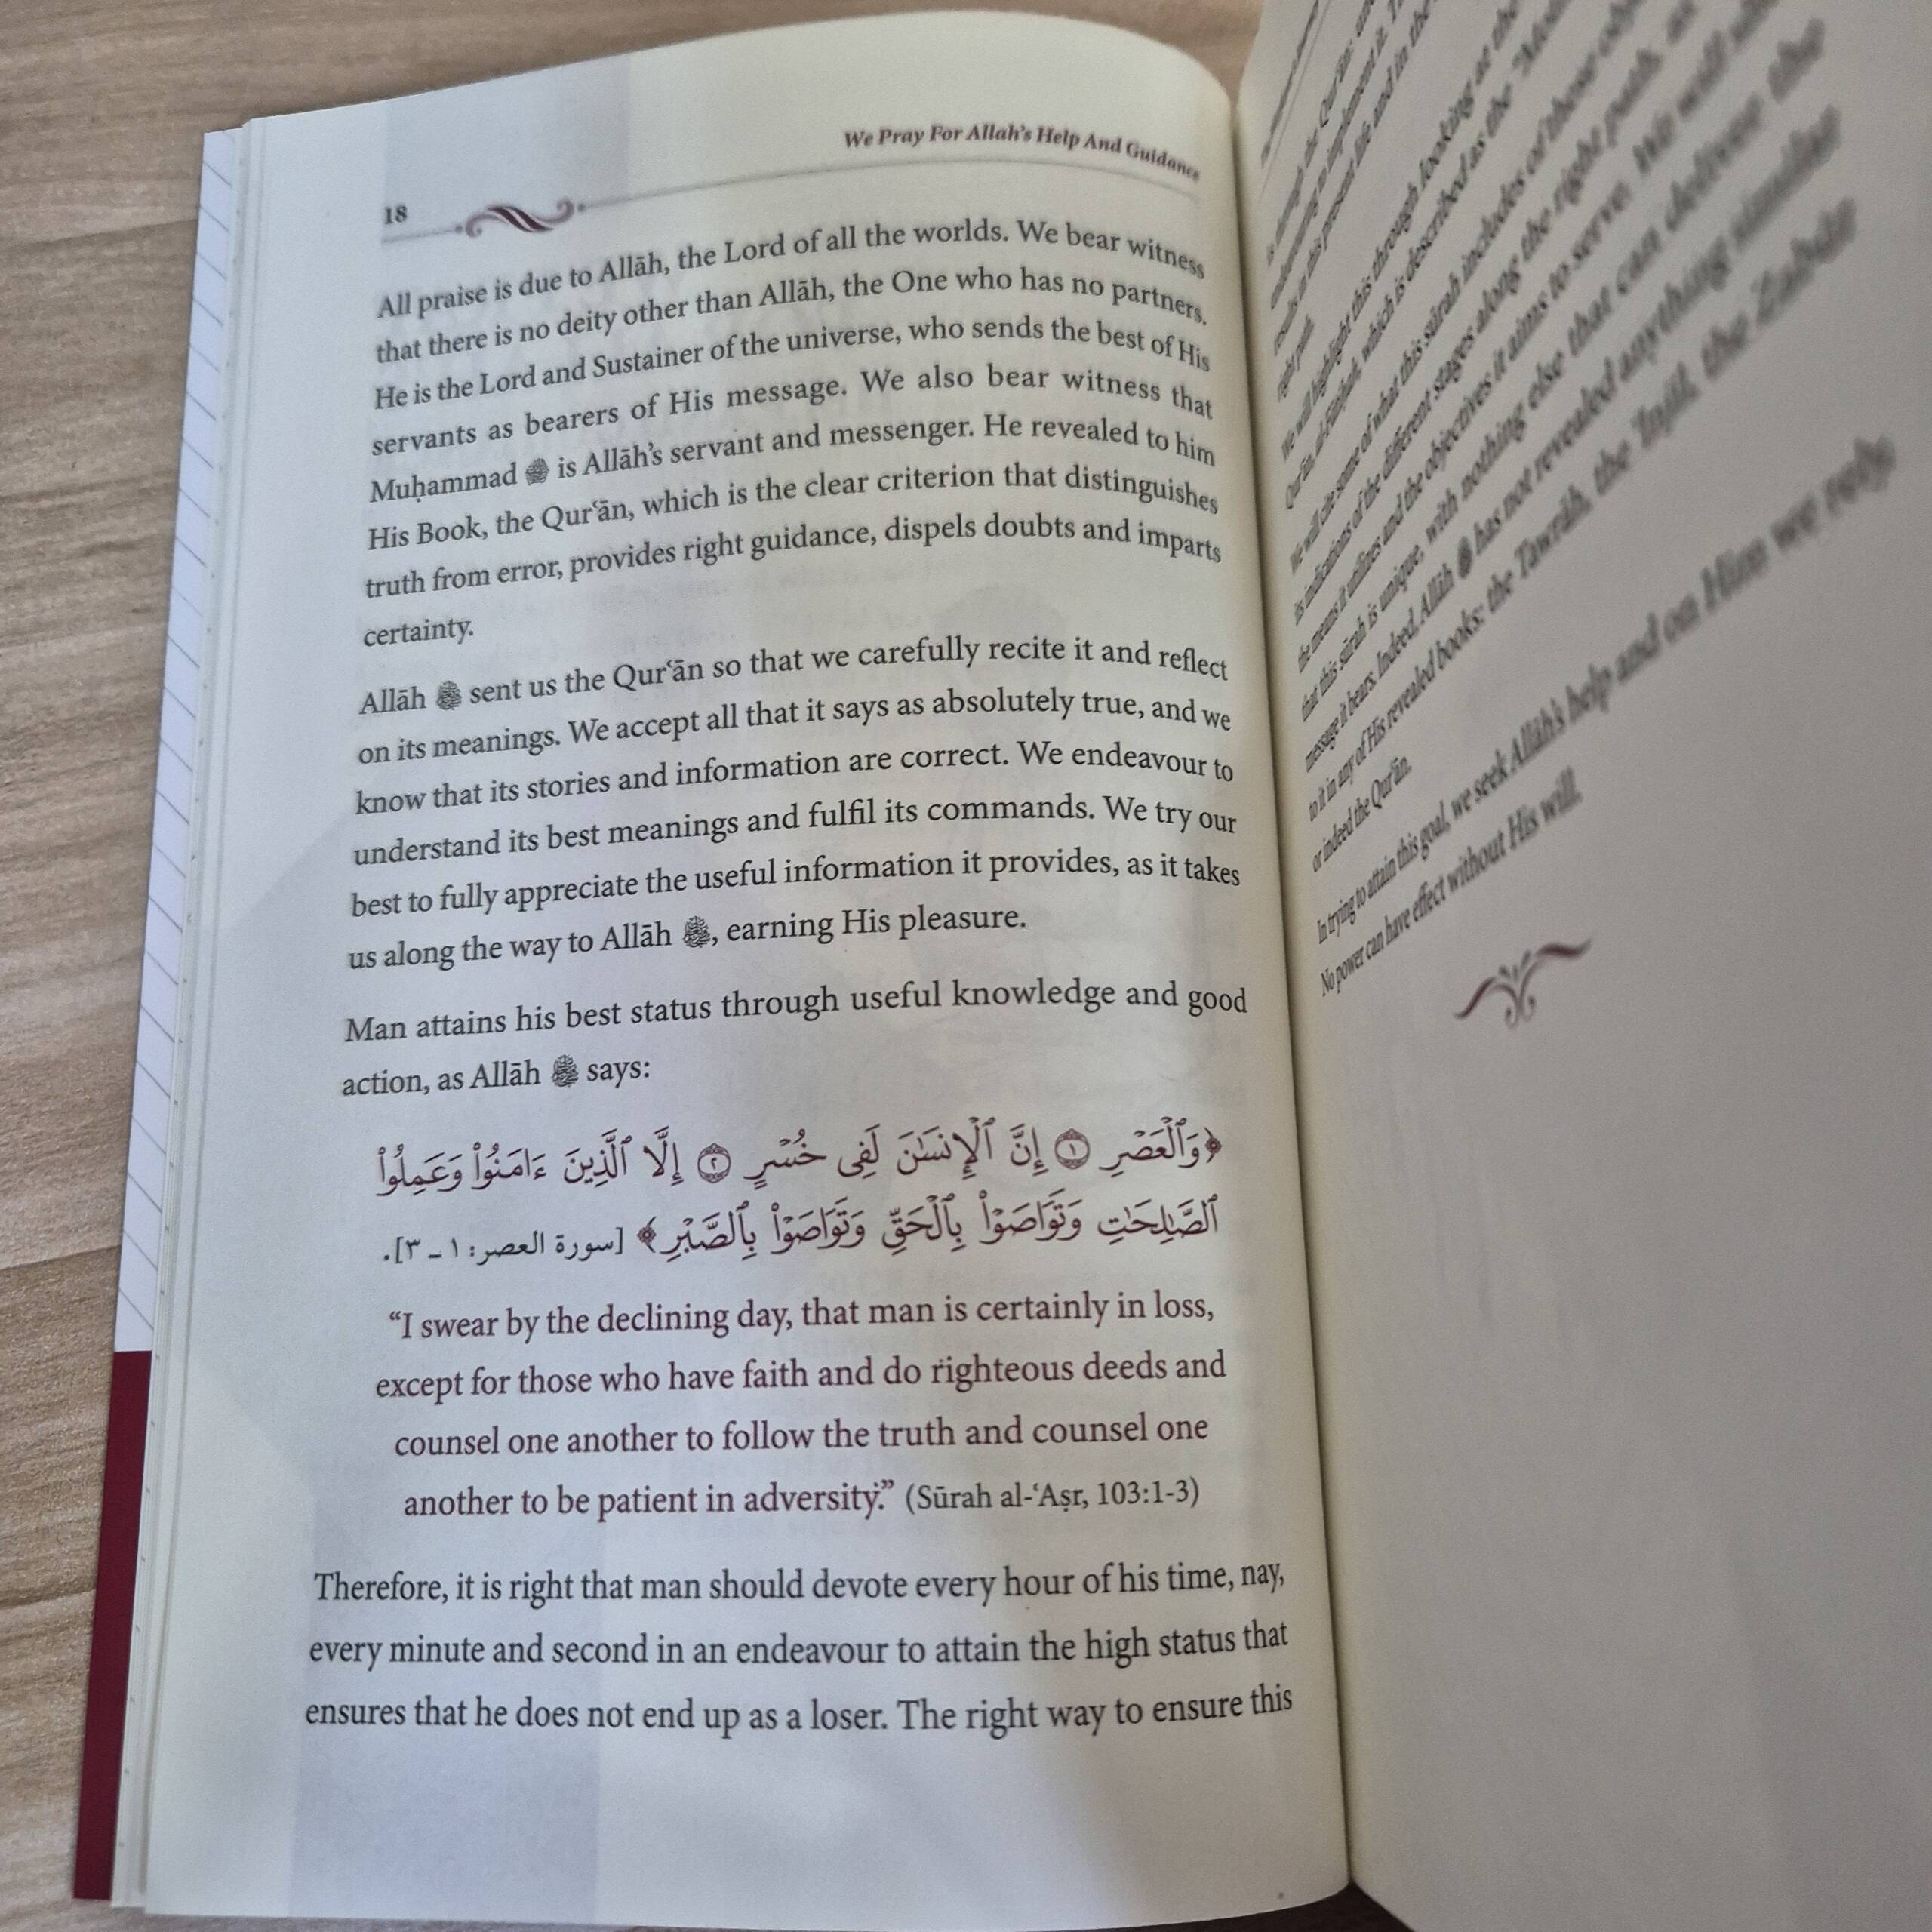 We Pray For Allah's Help And Guidance
18
All praise is due to Allāh, the Lord of all the worlds. We bear witness
that there is no deity other than Allāh, the One who has no partners.
He is the Lord and Sustainer of the universe, who sends the best of His
servants as bearers of His message. We also bear witness that
Muḥammad ﷺ is Allāh's servant and messenger. He revealed to him
His Book, the Qur‘ān, which is the clear criterion that distinguishes
truth from error, provides right guidance, dispels doubts and imparts
certainty.
Allāh sent us the Qur‘ān so that we carefully recite it and reflect
on its meanings. We accept all that it says as absolutely true, and we
know that its stories and information are correct. We endeavour to
understand its best meanings and fulfil its commands. We try our
best to fully appreciate the useful information it provides, as it takes
us along the way to Allāh , earning His pleasure.
Man attains his best status through useful knowledge and good
action, as Allāh says:
﴿وَٱلْعَصْرِ ١ إِنَّ ٱلْإِنسَٰنَ لَفِى خُسْرٍ ٢ إِلَّا ٱلَّذِينَ ءَامَنُوا۟ وَعَمِلُوا۟
ٱلصَّٰلِحَٰتِ وَتَوَاصَوْا۟ بِٱلْحَقِّ وَتَوَاصَوْا۟ بِٱلصَّبْرِ﴾ [سورة العصر: ١ - ٣].
“I swear by the declining day, that man is certainly in loss,
except for those who have faith and do righteous deeds and
counsel one another to follow the truth and counsel one
another to be patient in adversity.” (Sūrah al-‘Aṣr, 103:1-3)
Therefore, it is right that man should devote every hour of his time, nay,
every minute and second in an endeavour to attain the high status that
ensures that he does not end up as a loser. The right way to ensure this
We will highlight this through looking at the
Qur'ān, al-Fātiḥah, which is described as the
We will cite some of what this sūrah includes of those
its indications of the different stages along the right path, as
the means it utilizes and the objectives it aims to serve. We will
that this sūrah is unique, with nothing else that can deliver the
message it bears. Indeed, Allāh has not revealed anything similar
to it in any of His revealed books: the Tawrāh, the Injīl, the Zabūr
or indeed the Qur'ān.
In trying to attain this goal, we seek Allāh's help and on Him we rely.
No power can have effect without His will.